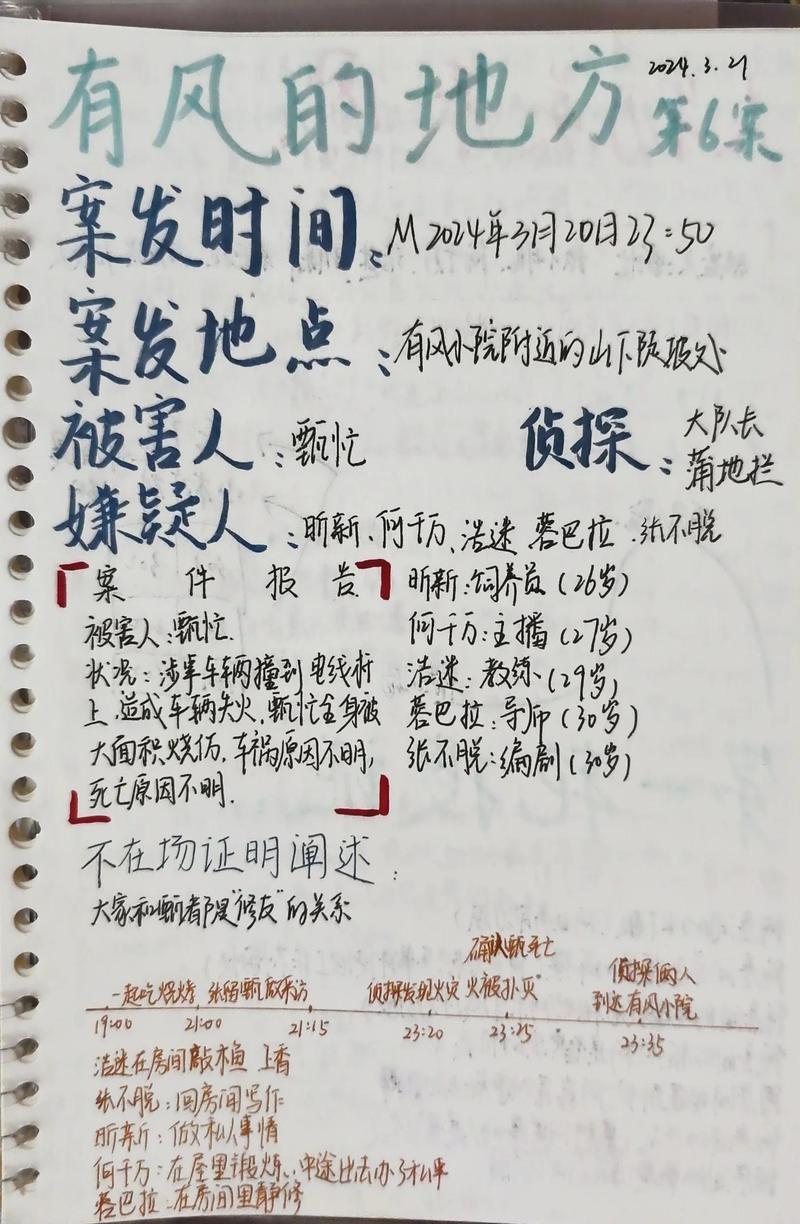 有风的地方
2024.3.21
第6案
案发时间：M2024年3月20日23:50
案发地点：有风小院附近的山下陡坡处
被害人：甄忙
侦探：大队长
蒲地拦
嫌疑人：昕新、何千万、浩迷 蓉巴拉、张不脱
案件报告
被害人：甄忙.
状况：涉事车辆撞到电线杆
上.造成车辆失火.甄忙全身被
大面积烧伤.车祸原因不明,
死亡原因不明.
昕新：饲养员（26岁）
何千万：主播（27岁）
浩迷：教练（29岁）
蓉巴拉：导师（30岁）
张不脱：编剧（30岁）
不在场证明阐述：
大家和甄都是“修友”的关系
确认甄死亡
一起吃烧烤 张留甄做采访 侦探发现火灾 火被扑灭 侦探俩人
到达有风小院
19:00 21:00 21:15 23:20 23:25 23:35
浩迷在房间敲木鱼 上香
张不脱：回房间写作
昕新：做私人事情
何千万：在屋里锻炼,中途出去办了私事
蓉巴拉：在房间里静修